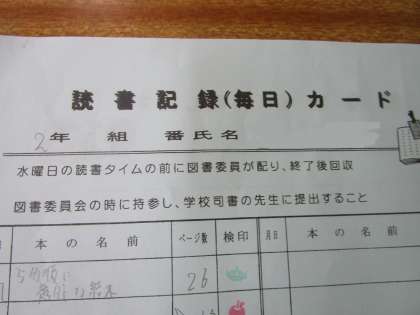 読書記録(毎日)カード
2年 組 番氏名
水曜日の読書タイムの前に図書委員が配り、終了後回収
図書委員会の時に持参し、学校司書の先生に提出すること
本の名前 ページ数 検印 月日 本の名前
26